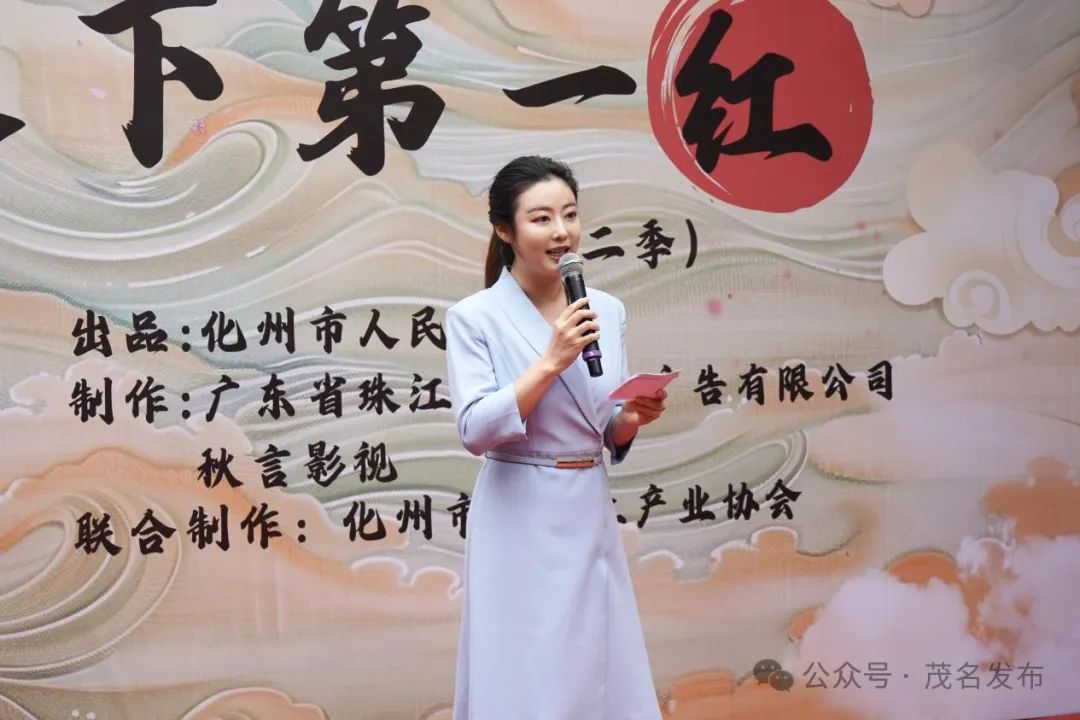 下第一红
二季)
出品:化州市人民
制作:广东省珠江 告有限公司
秋言影视
联合制作: 化州市 产业协会
公众号·茂名发布